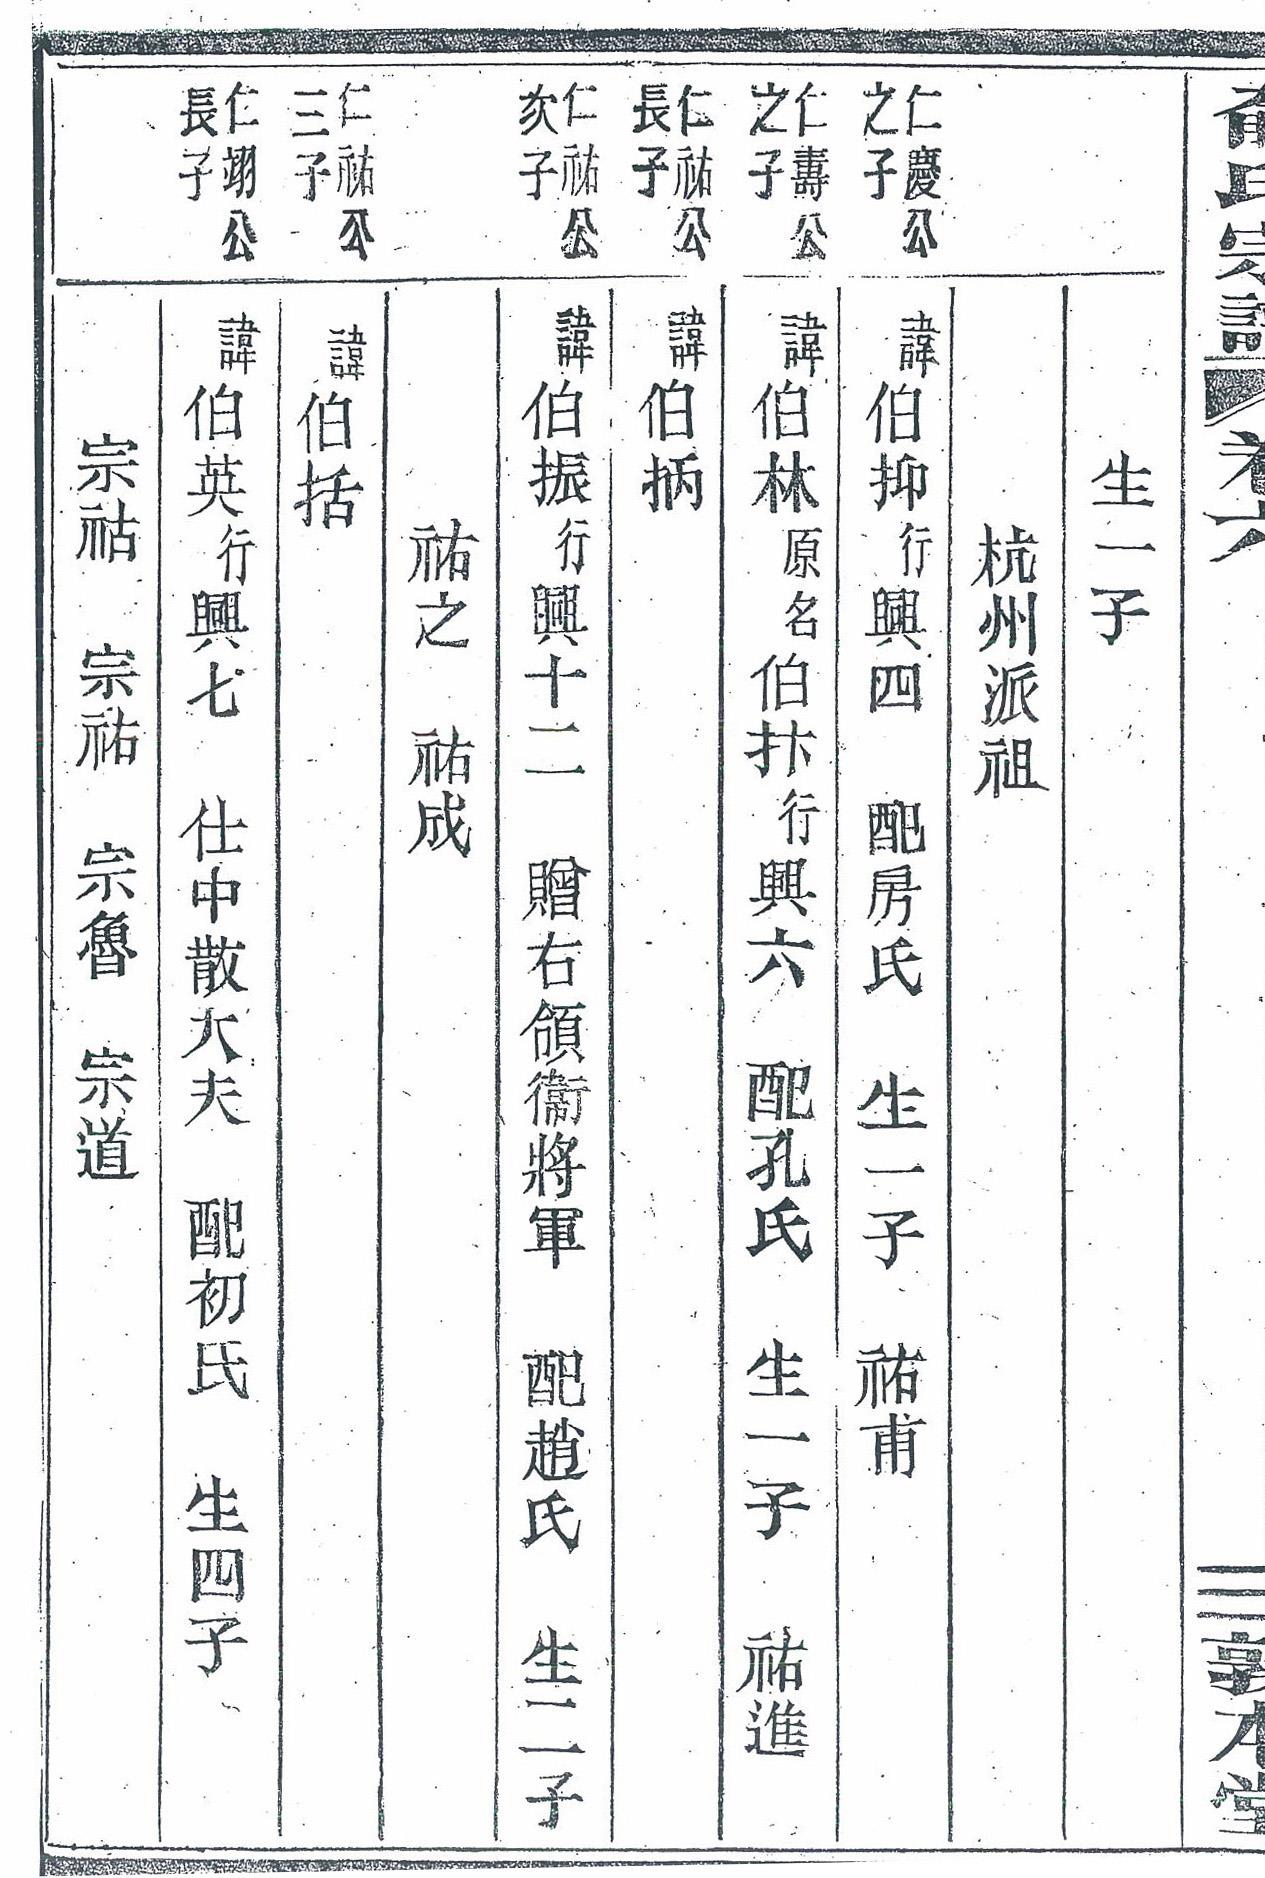 氏宗譜 卷六 三 敦本堂
生一子
杭州派祖
仁慶公之子
諱伯抑行興四 配房氏 生一子 祐甫
仁壽公之子
諱伯林原名伯抃行興六 配孔氏 生一子 祐進
仁祐公長子
諱伯抦
仁祐公次子
諱伯振行興十二 贈右領衞將軍 配趙氏 生二子
祐之 祐成
仁祐公三子
諱伯括
仁翊公長子
諱伯英行興七 仕中散大夫 配初氏 生四子
宗祜 宗祐 宗魯 宗道